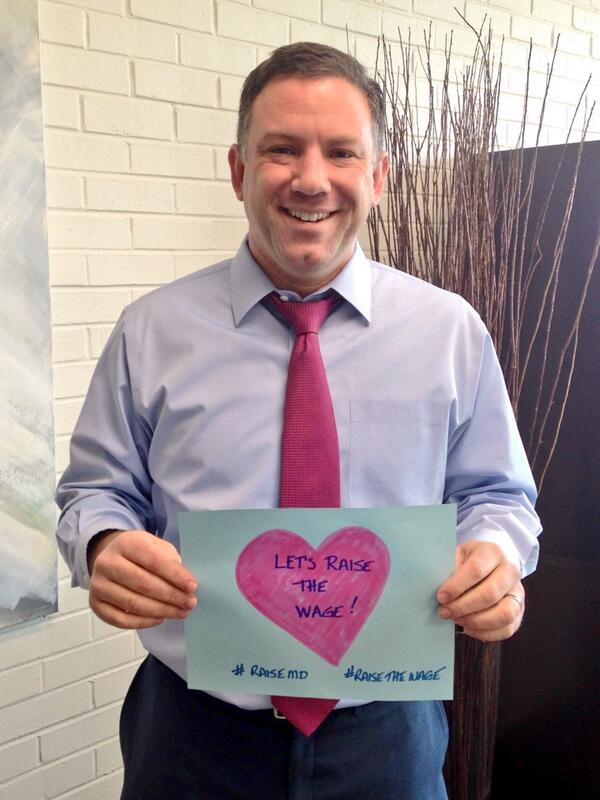 LET'S RAISE
THE
WAGE!
#RAISEMD #RAISETHEWAGE